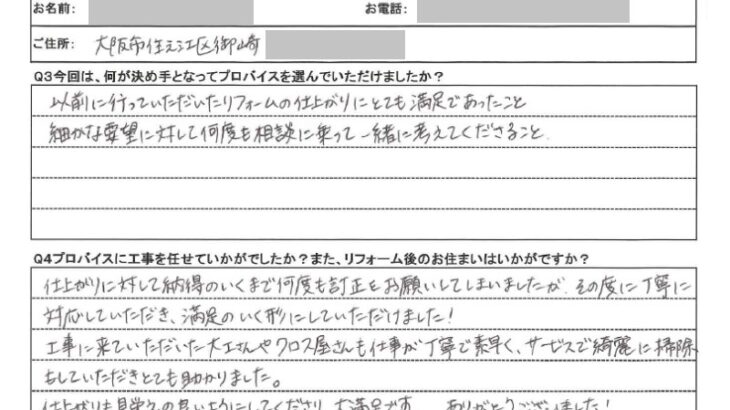 お名前: お電話:
ご住所: 大阪市住之江区御崎
Q3今回は、何が決め手となってプロバイスを選んでいただけましたか？
以前に行っていただいたリフォームの仕上がりにとても満足であったこと
細かな要望に対して何度も相談に乗って一緒に考えてくださること.
Q4プロバイスに工事を任せていかがでしたか？また、リフォーム後のお住まいはいかがですか？
仕上がりに対して納得のいくまで何度も訂正をお願いしてしまいましたが、その度に丁寧に
対応していただき、満足のいく形にしていただけました！
工事に来ていただいた大工さんやクロス屋さんも仕事が丁寧で素早く、サービスで綺麗に掃除
もしていただきとても助かりました。
仕上がりも見栄えの良いようにしてくださり、大満足です ありがとうございました！